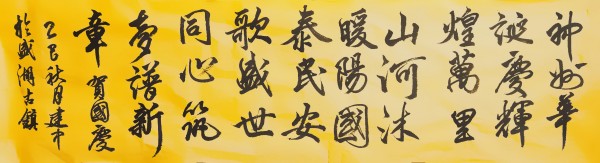 神州華
誕慶輝
煌萬里
山河沐
暖陽國
泰民安
歌盛世
同心筑
夢譜新
章 賀國慶
乙巳秋月建中
於盛湖古鎮